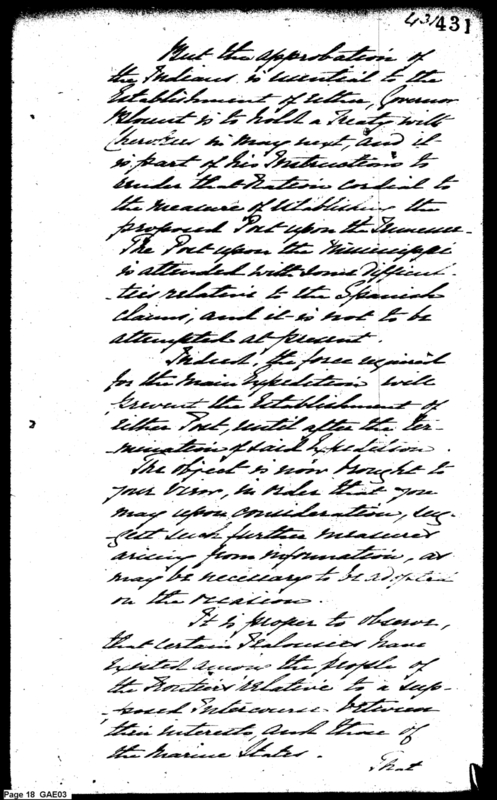 431 431
But the approbation of
the Indians is essential to the
Establishment of either, Governor
Blount is to hold a Treaty with
Cherokees in May next, and it
is part of his Instructions to
render that Nation cordial to
the measure of establishing the
proposed Post upon the Tennessee.
The Post upon the Mississippi
is attended with some difficul-
-ties relative to the Spanish
claims, and it is not to be
attempted at present.
Indeed, the force required
for the main Expedition will
prevent the Establishment of
either Post, until after the Ter-
-mination of said Expedition.
The object is now brought to
your view, in order that you
may upon consideration, sug-
-gest such further measures
arising from information, as
may be necessary to be adopted
on the occasion.
It is proper to observe,
that certain Jealousies have
existed among the people of
the Frontiers relative to a sup-
-posed Intercourse between
their interests, and those of
the Marine States.
That
Page 18 GAE03